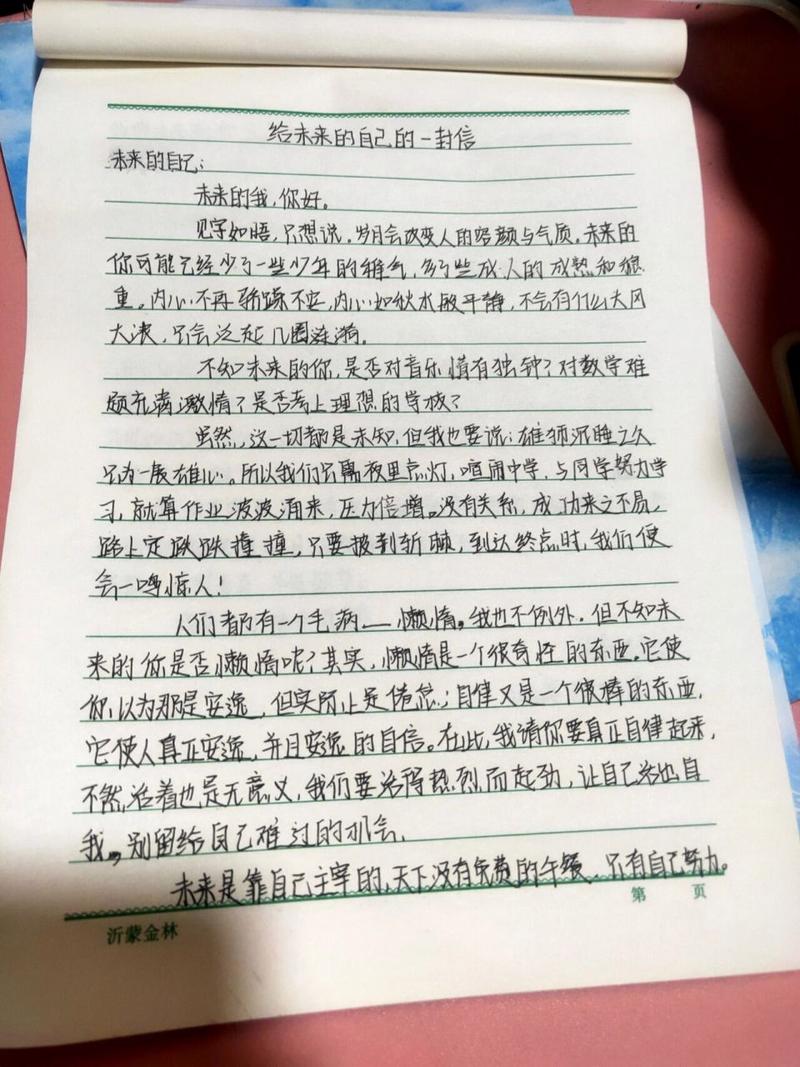 给未来的自己的一封信
未来的自己:
未来的我,你好。
见字如晤,只想说,岁月会改变人的容颜与气质。未来的
你可能已经少了一些少年的稚气,多了些成人的成熟和稳
重。内心不再骄躁不安,内心如秋水般平静,不会有什么大风
大浪,只会泛起几圈涟漪。
不知未来的你,是否对音乐情有独钟?对数学难
题充满激情?是否考上理想的学校?
虽然,这一切都是未知,但我也要说:雄狮沉睡之久
只为一展雄心。所以我们只需夜里点灯,喧闹中学,与同学努力学
习,就算作业波波涌来,压力倍增。没有关系,成功来之不易,
路上定跌跌撞撞,只要披荆斩棘,到达终点时,我们便
会一鸣惊人!
人们都有一个毛病——懒惰。我也不例外,但不知未
来的你是否懒惰呢?其实,懒惰是一个很奇怪的东西。它使
你以为那是安逸,但实际上是倦怠;自律又是一个很棒的东西,
它使人真正安逸,并且安逸的自信。在此,我请你要真正自律起来,
不然活着也是无意义,我们要活得热烈而起劲,让自己活出自
我。别留给自己难过的机会。
未来是靠自己主宰的,天下没有免费的午餐,只有自己努力。
第 页
沂蒙金林